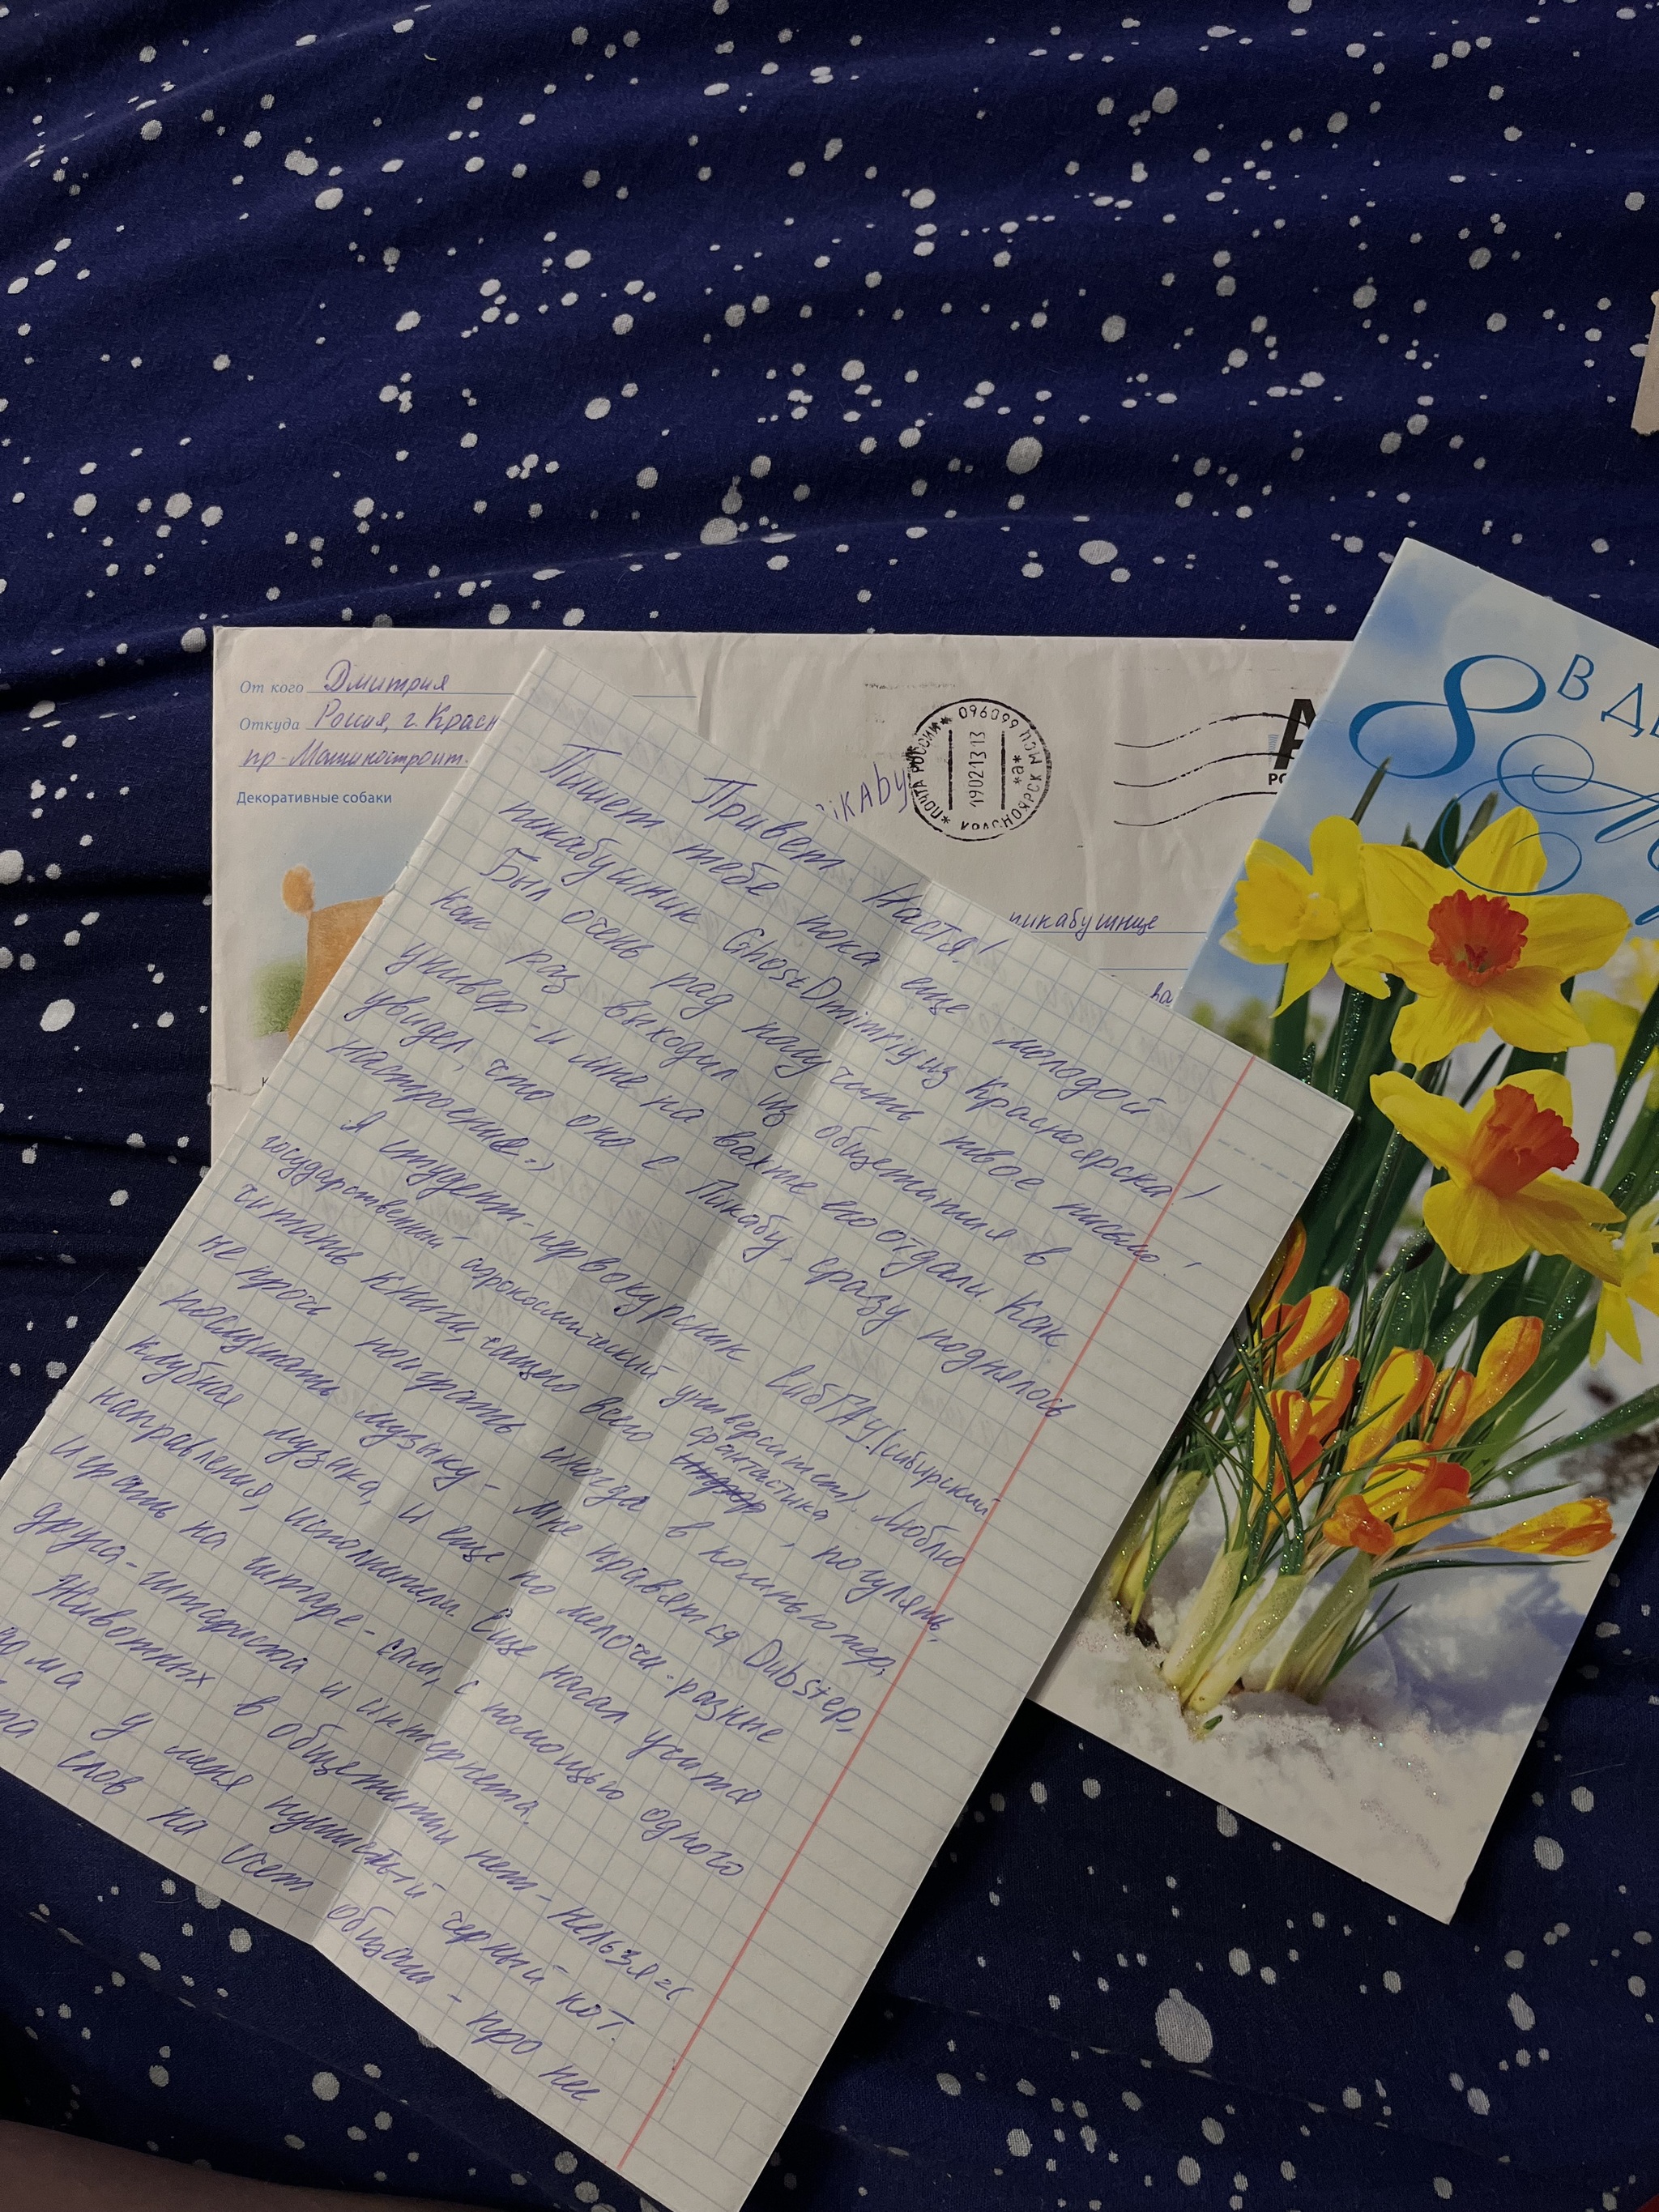 От кого Дмитрия
Откуда Россия, г. Красн
пр-Машиностроит.
Декоративные собаки
ПОЧТА РОССИИ 096099
190213 13
*а*
PiKABy
пикабушнице
на
В Д
8
Привет Настя!
Пишет тебе пока еще молодой
пикабушник GhostDmitriy из Красноярска!
Был очень рад получить твое письмо!
Как раз выходил из общежития в
универ - и мне на вахте его отдали. Как
увидел, что оно с Пикабу, сразу поднялось
настроение =)
Я студент-первокурсник СибГАУ (сибирский
государственный аэрокосмический университет). Люблю
читать книги, чащего всего фантастика, погулять,
не прочь поиграть иногда в компьютер,
послушать музыку - мне нравется Dubstep,
клубная музыка, и еще по мелочи - разные
направления, исполнители. Еще начал учится
играть на гитаре - сам, с помощью одного
друга-гитариста и интернета.
Животных в общежитии нет - нельзя =(
Дома у меня пушистый черный кот.
слов на счет общаги - про нее